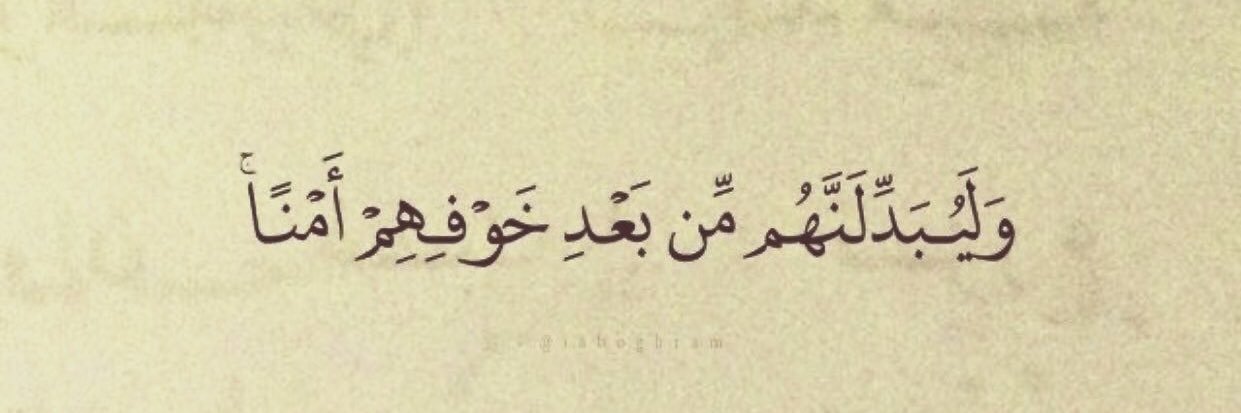 وَلَيُبَدِّلَنَّهُم مِّن بَعْدِ خَوْفِهِمْ أَمْنًا ۚ
@iaboghram